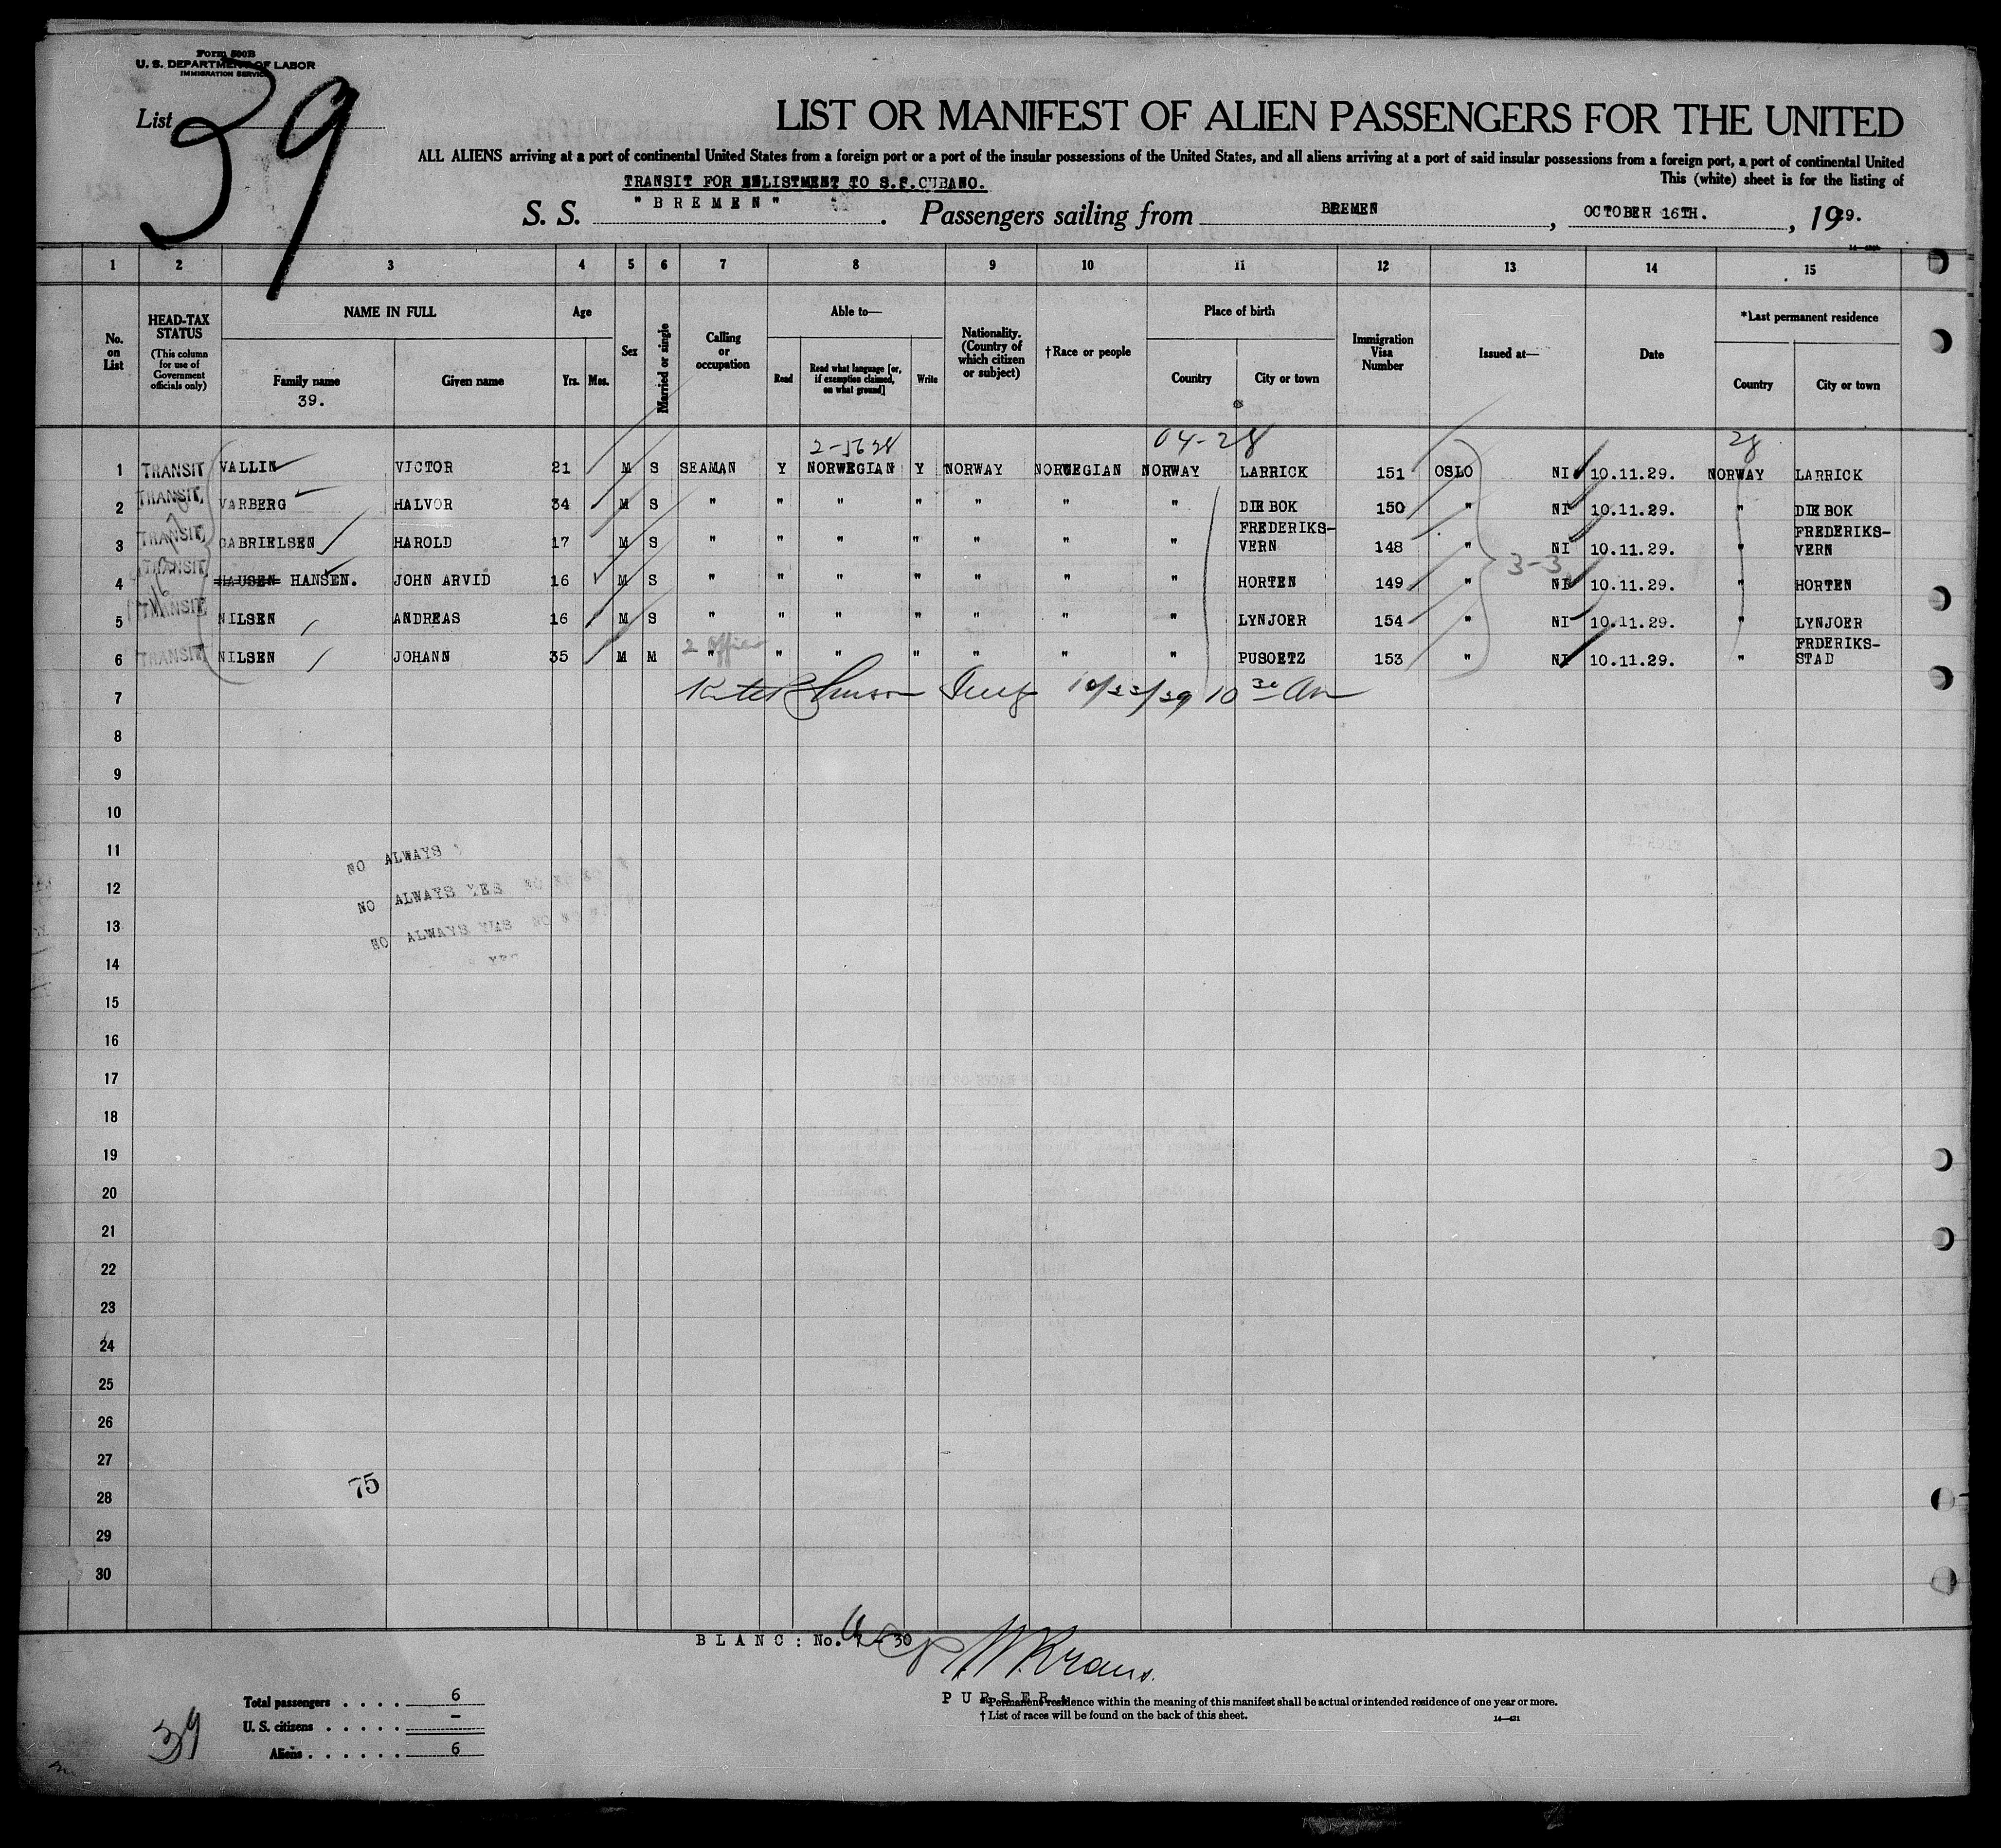 Form 500B
U. S. DEPARTMENT OF LABOR
IMMIGRATION SERVICE
List 39
LIST OR MANIFEST OF ALIEN PASSENGERS FOR THE UNITED
ALL ALIENS arriving at a port of continental United States from a foreign port or a port of the insular possessions of the United States, and all aliens arriving at a port of said insular possessions from a foreign port, a port of continental United
This (white) sheet is for the listing of
TRANSIT FOR ENLISTMENT TO S.F.CUBANO.
S. S. "BREMEN". Passengers sailing from BREMEN, OCTOBER 16TH., 1929.
1 2 3 4 5 6 7 8 9 10 11 12 13 14 15
No. on List
HEAD-TAX STATUS (This column for use of Government officials only)
NAME IN FULL
Family name
39.
Given name
Age
Yrs. Mos.
Sex
Married or single
Calling or occupation
Able to—
Read
Read what language [or, if exemption claimed, on what ground]
Write
Nationality. (Country of which citizen or subject)
†Race or people
Place of birth
Country
City or town
Immigration Visa Number
Issued at—
Date
*Last permanent residence
Country
City or town
04-28 28
1 TRANSIT VALLIN VICTOR 21 M S SEAMAN Y NORWEGIAN Y NORWAY NORWEGIAN NORWAY LARRICK 151 OSLO NI 10.11.29. NORWAY LARRICK
2 TRANSIT VARBERG HALVOR 34 M S " " " " " " " DIE BOK 150 " NI 10.11.29. " DIE BOK
3 TRANSIT GABRIELSEN HAROLD 17 M S " " " " " " " FREDERIKS-VERN 148 " NI 10.11.29. " FREDERIKS-VERN
4 TRANSIT HAUSEN HANSEN. JOHN ARVID 16 M S " " " " " " " HORTEN 149 " NI 10.11.29. " HORTEN
3-3
5 TRANSIT NILSEN ANDREAS 16 M S " " " " " " " LYNJOER 154 " NI 10.11.29. " LYNJOER
6 TRANSIT NILSEN JOHANN 35 M M " " " " " " " PUSOETZ 153 " NI 10.11.29. " FRDERIKS-STAD
7
8
9
10
11
12
13
14
15
16
17
18
19
20
21
22
23
24
25
26
27
28
29
30
NO ALWAYS
NO ALWAYS YES
NO ALWAYS YAS
75
BLANC: No. 7 - 30
PURSER.
Total passengers . . . . 6
U. S. citizens . . . . . –
Aliens . . . . . . 6
39
*Permanent residence within the meaning of this manifest shall be actual or intended residence of one year or more.
†List of races will be found on the back of this sheet.